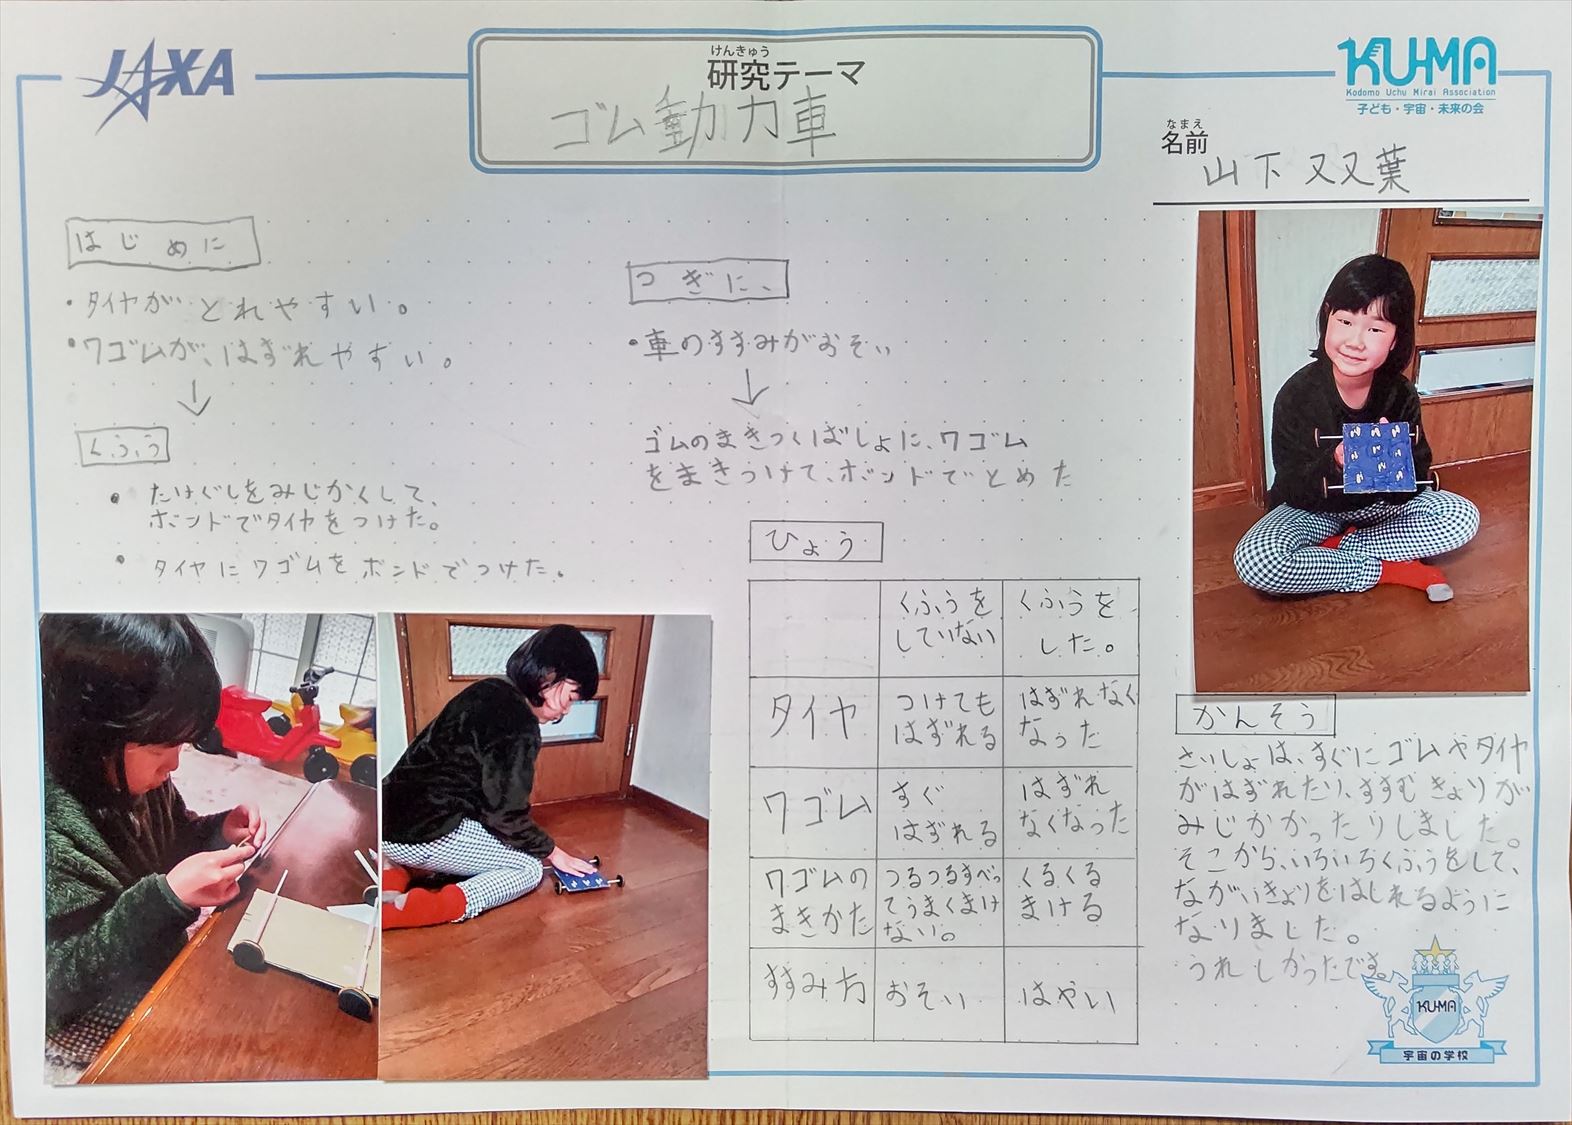 JAXA
けんきゅう
研究テーマ
ゴム動力車
KUMA
Kodomo Uchu Mirai Association
子ども・宇宙・未来の会
なまえ
名前
山下 双葉
はじめに
・タイヤが とれやすい。
・ワゴムが、はずれやすい。
↓
くふう
・たけぐしをみじかくして、
ボンドでタイヤをつけた。
・タイヤにワゴムをボンドでつけた。
つぎに、
・車のすすみがおそい
↓
ゴムのまきつくばしょに、ワゴム
をまきつけて、ボンドでとめた
ひょう
くふうを
していない
くふうを
した。
タイヤ
つけても
はずれる
はずれなく
なった
ワゴム
すぐ
はずれる
はずれ
なくなった
ワゴムの
まきかた
つるつるすべっ
てうまくまけ
ない。
くるくる
まける
すすみ方
おそい
はやい
かんそう
さいしょは、すぐにゴムやタイヤ
がはずれたり、すすむきょりが
みじかかったりしました。
そこから、いろいろくふうをして、
ながいきょりをはしれるように
なりました。
うれしかったです。
KUMA
宇宙の学校